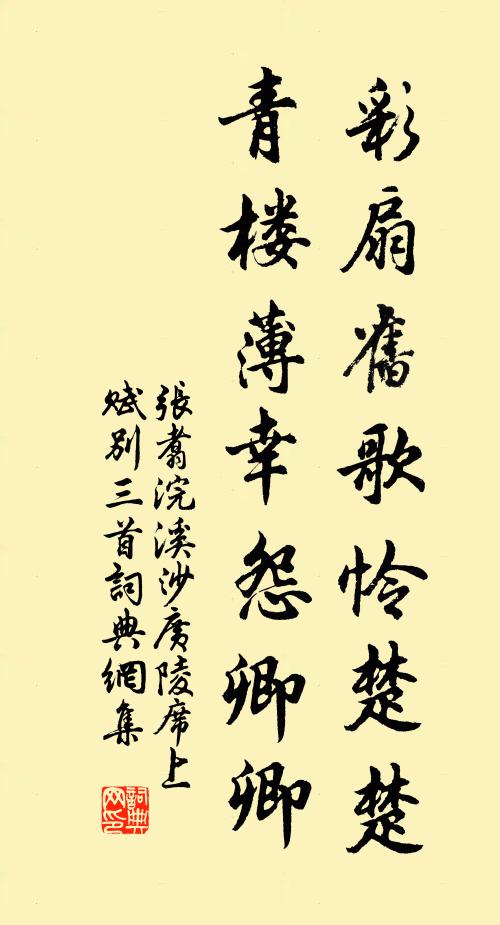 彩扇舊歌怜楚楚
青楼薄幸怨卿卿
張翥浣溪沙廣陵席上
賦別三首詞典網集
詞典网印